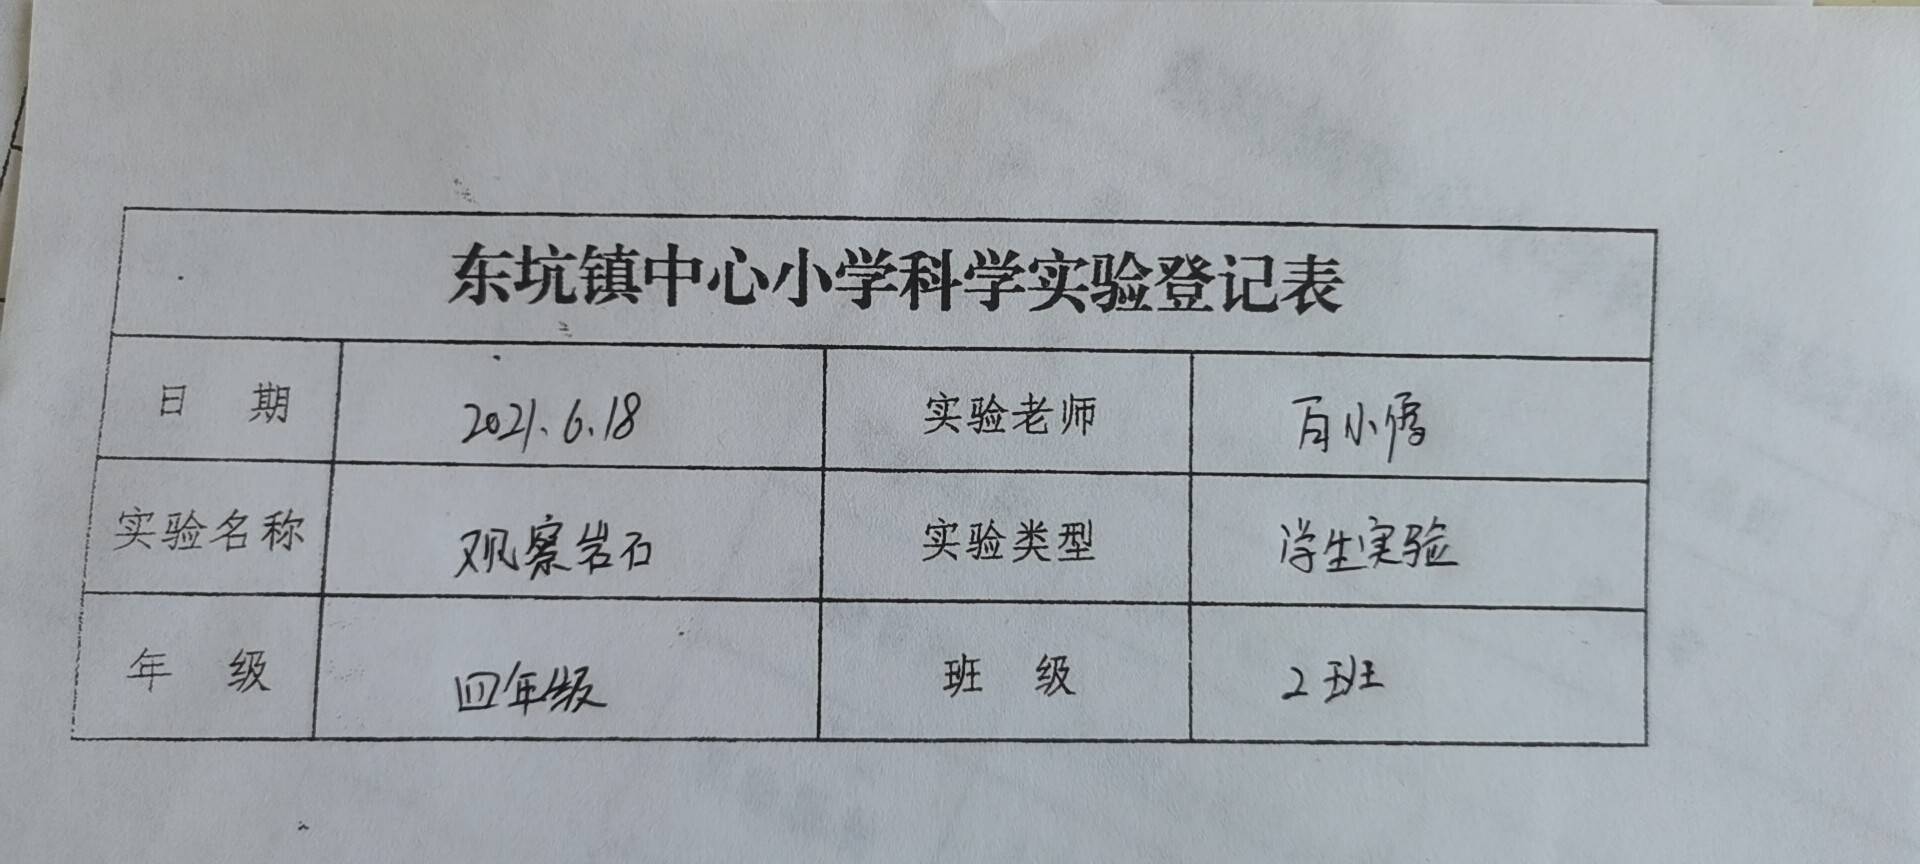 东坑镇中心小学科学实验登记表
日 期 2021.6.18 实验老师 小
实验名称 观察岩石 实验类型 学生实验
年 级 四年级 班 级 2班